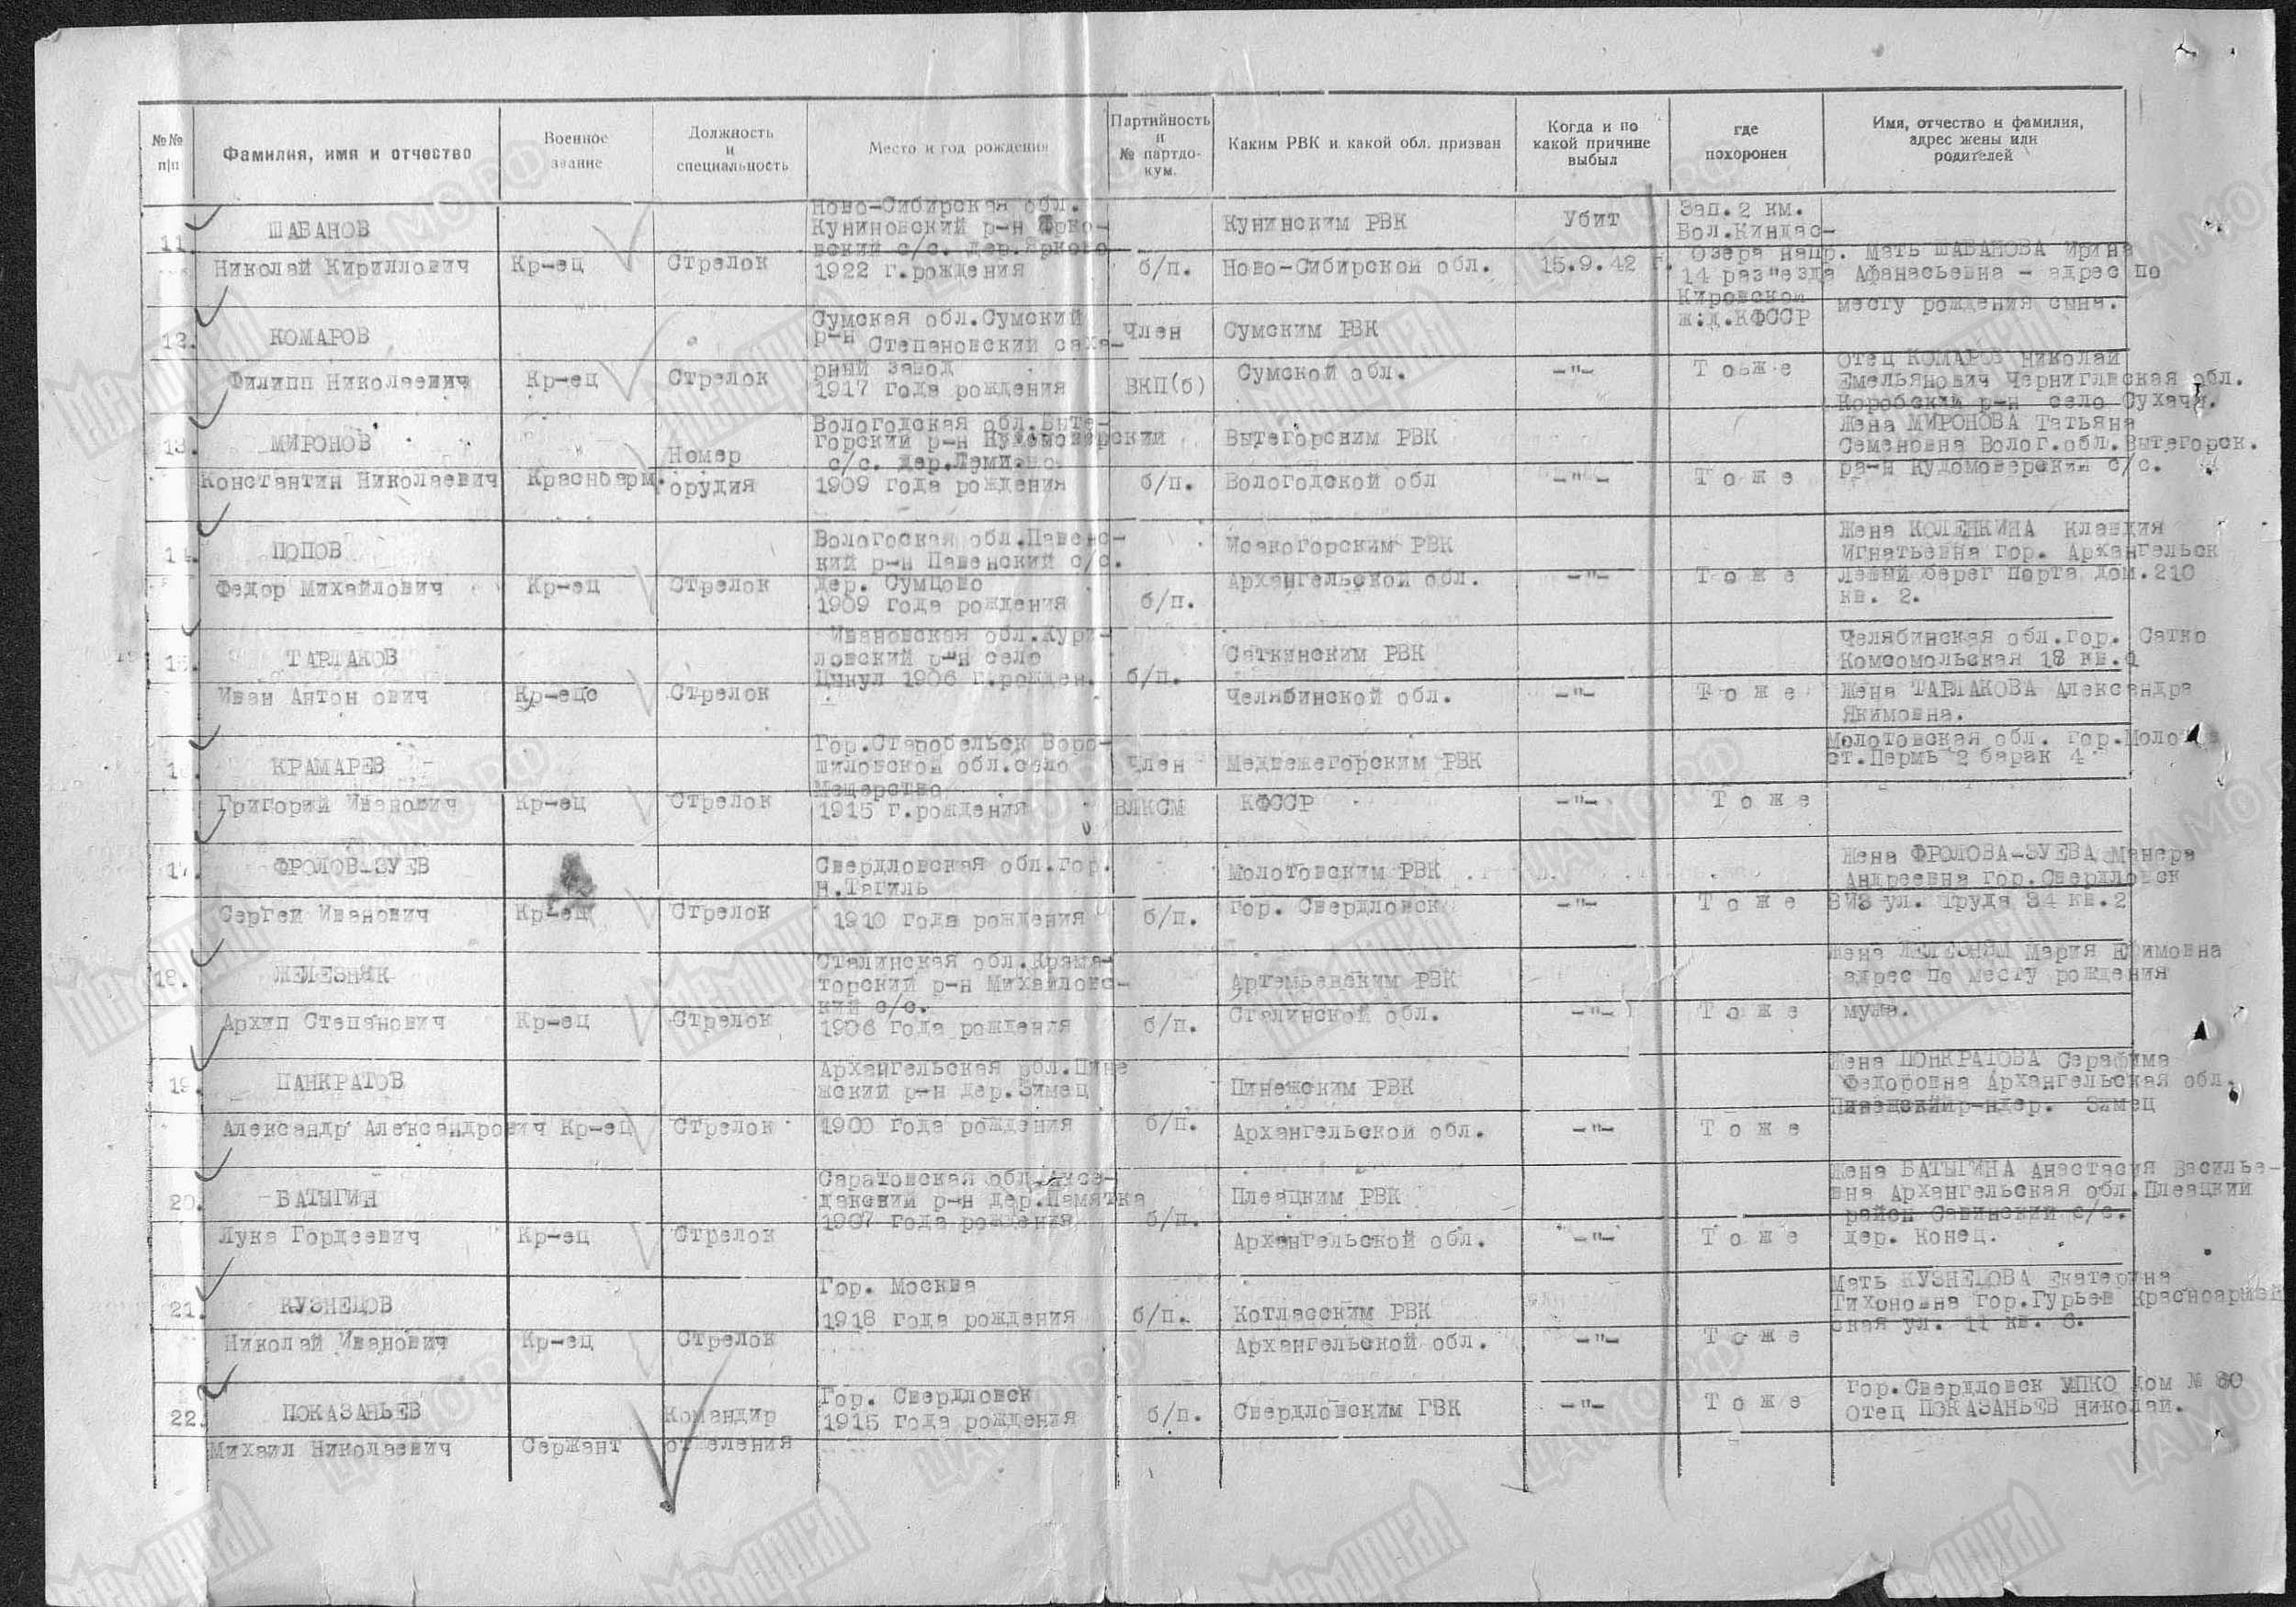 №№ п|п
Фамилия, имя и отчество
Военное звание
Должность и специальность
Место и год рождения
Партийность и № партдо-кум.
Каким РВК и какой обл. призван
Когда и по какой причине выбыл
где похоронен
Имя, отчество и фамилия, адрес жены или родителей
11.
ШАБАНОВ
Николай Кириллович
Кр-ец
Стрелок
Ново-Сибирская обл.
Куниновский р-н Ярко-
вский с/с. дер.Ярково
1922 г.рождения
б/п.
Кунинским РВК
Ново-Сибирской обл.
Убит
15.9.42 г.
Зап.2 км.
Бол.Киндас-
Озера напр.
14 раз"езда
Кировской
ж:д.КФССР
Мать ШАБАНОВА Ирина
Афанасьевна - адрес по
месту рождения сына.
12.
КОМАРОВ
Филипп Николаевич
Кр-ец
Стрелок
Сумская обл.Сумский
р-н Степановский саха-
рный завод
1917 года рождения
Член
ВКП(б)
Сумским РВК
Сумской обл.
-"-
Т о ж е
Отец КОМАРОВ Николай
Емельянович Черниглвская обл.
Коробский р-н село Сухачи.
13.
МИРОНОВ
Константин Николаевич
Красноарм.
Номер
орудия
Вологодская обл.Выте-
горский р-н
с/с. дер.
1909 года рождения
б/п.
Вытегорским РВК
Вологодской обл
-"-
Т о ж е
Жена МИРОНОВА Татьяна
Семеновна Волог.обл.Вытегорск.
ра-н Кудомозерский с/с.
14.
ПОПОВ
Федор Михайлович
Кр-ец
Стрелок
Вологоская обл.Павенс-
кий р-н Павенский с/с.
дер. Сумцово
1909 года рождения
б/п.
Исакогорским РВК
Архангельской обл.
-"-
Т о ж е
Жена КОЛЕНКИНА Клавдия
Игнатьевна гор. Архангельск
Левый берег порта дом.210
кв. 2.
15.
ТАРЛАКОВ
Иван Антон ович
Кр-ецс
Стрелок
Ивановская обл.Кури-
ловский р-н село
Цынул 1906 г.рожден.
б/п.
Саткинским РВК
Челябинской обл.
-"-
Т о ж е
Челябинская обл.гор. Сатко
Комсомольская 18 кв.
Жена ТАРЛАКОВА Александра
Якимовна.
16.
КРАМАРЕВ
Григорий Иванович
Кр-ец
Стрелок
Гор.Старобельск Воро-
шиловской обл.село
Мещерство
1915 г.рождения
член
ВЛКСМ
Медвежегорским РВК
КФССР
-"-
Т о ж е
Молотовская обл. гор.Молотов
ст.Пермь 2 барак 4
17.
ФРОЛОВ-ЗУЕВ
Сергей Иванович
Кр-ец
Стрелок
Свердловская обл.гор.
Н.Тагиль
1910 года рождения
б/п.
Молотовским РВК
гор. Свердловск
-"-
Т о ж е
Жена ФРОЛОВА-ЗУЕВА
Андреевна гор.Свердловск
ВИЗ ул. Труда 34 кв.2
18.
ЖЕЛЕЗНЯК
Архип Степанович
Кр-ец
Стрелок
Сталинская обл.Крама-
торский р-н Михайловс-
кий с/с.
1906 года рождения
б/п.
Артемьевским РВК
Сталинской обл.
-"-
Т о ж е
Жена ЖЕЛЕЗНЯК Мария Ефимовна
адрес по месту рождения
мужа.
19.
ПАНКРАТОВ
Александр Александрович
Кр-ец
Стрелок
Архангельская обл.Пине
жский р-н дер.Зимец
1900 года рождения
б/п.
Пинежским РВК
Архангельской обл.
-"-
Т о ж е
Жена ПОНКРАТОВА Серафима
Федоровна Архангельская обл.
Пинежскийр-ндер. Зимец
20.
БАТЫГИН
Лука Гордеевич
Кр-ец
Стрелок
Саратовская обл.
р-н дер.Памятка
1907 года рождения
б/п.
Плеацким РВК
Архангельской обл.
-"-
Т о ж е
Жена БАТЫГИНА Анастасия Василье-
вна Архангельская обл.Плеацкий
район Савинский с/с.
дер. Конец.
21.
КУЗНЕЦОВ
Николай Иванович
Кр-ец
Стрелок
Гор. Москва
1918 года рождения
б/п.
Котласским РВК
Архангельской обл.
-"-
Т о ж е
Мать КУЗНЕЦОВА Екатерина
Тихоновна гор.Гурьев Красноармей
ская ул. 11 кв. 6.
22.
ПОКАЗАНЬЕВ
Михаил Николаевич
Сержант
Командир
отделения
Гор. Свердловск
1915 года рождения
б/п.
Свердловским ГВК
-"-
Т о ж е
Гор.Свердловск УПКО дом № 60
Отец ПОКАЗАНЬЕВ Николай.